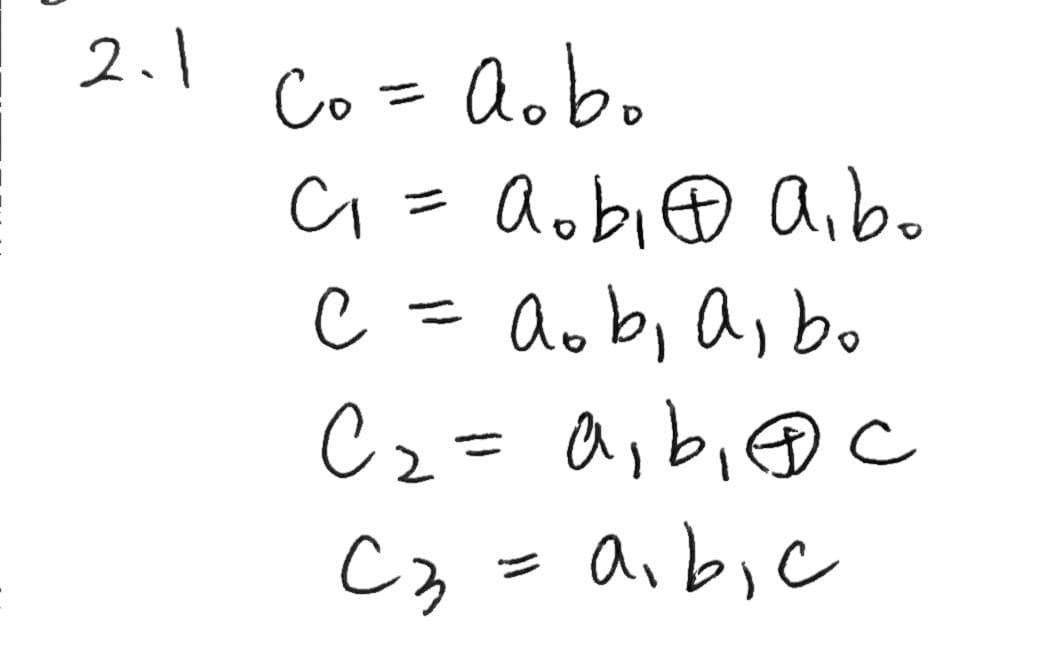 2.1 C₀ = a₀b₀
C₁ = a₀b₁ ⊕ a₁b₀
C = a₀b₁a₁b₀
C₂ = a₁b₁ ⊕ C
C₃ = a₁b₁C